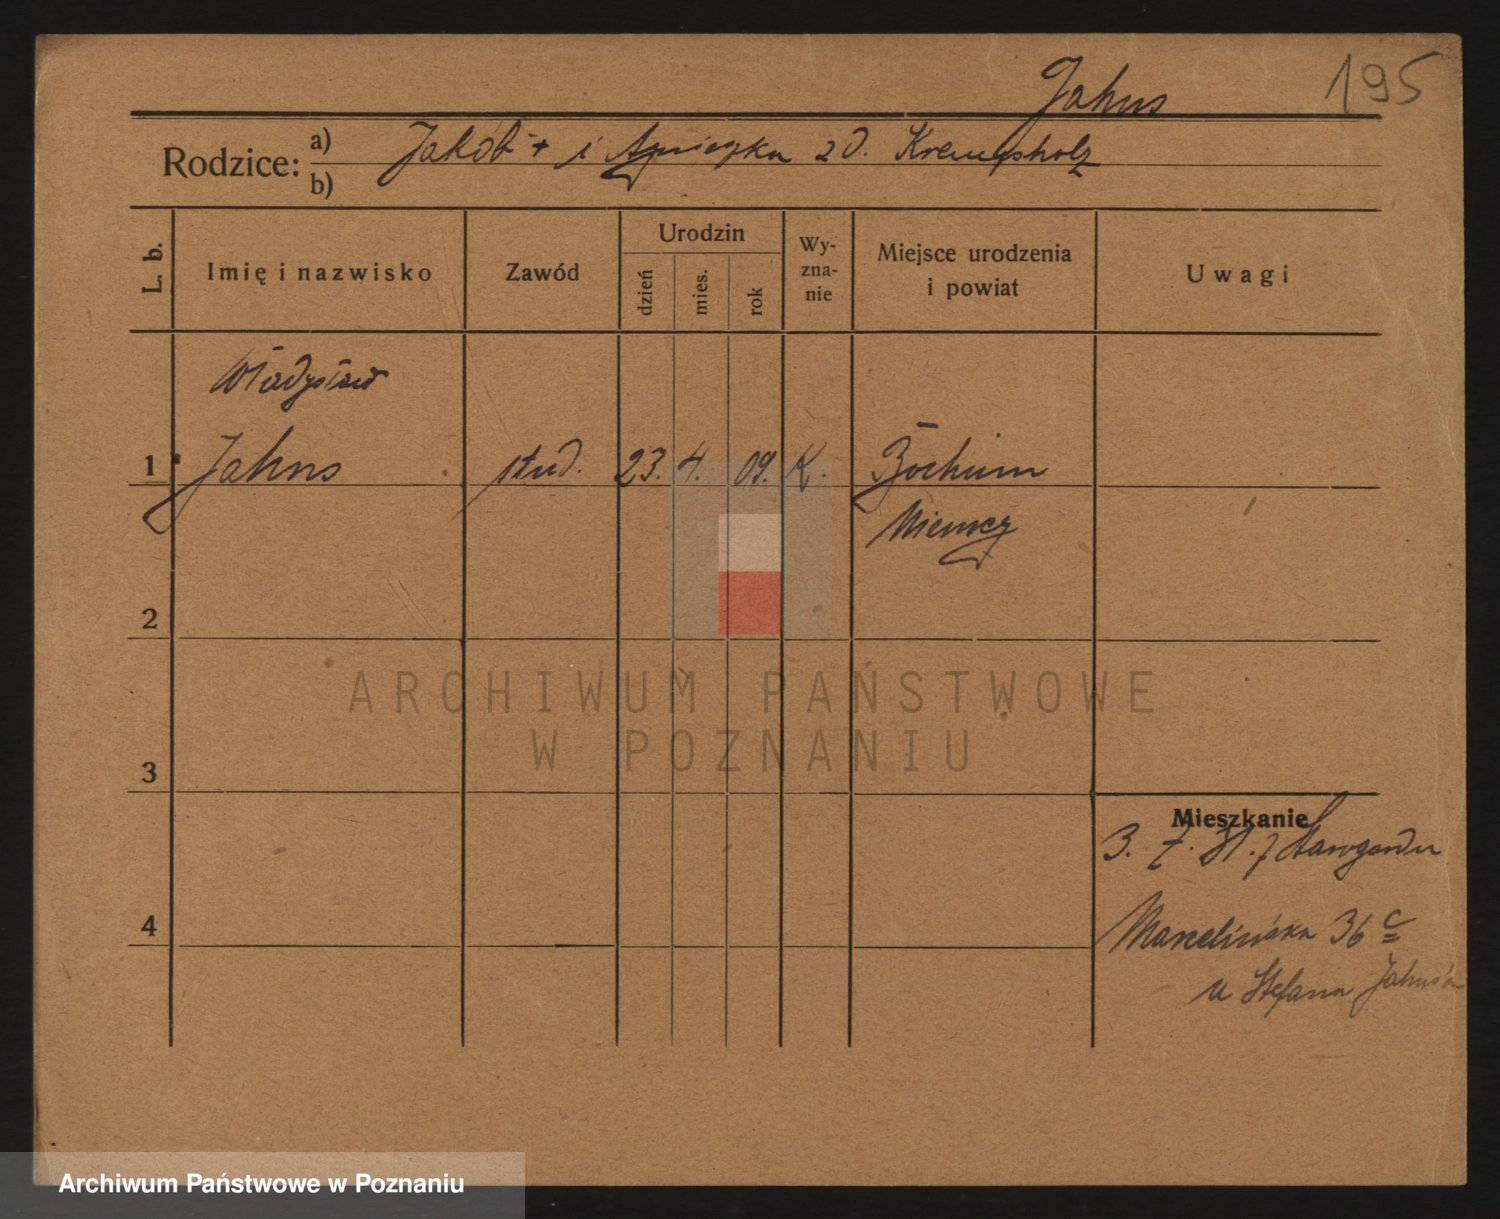 195
Jahns
Rodzice:
a) Jakób + i Agnieszka zd. Krempsholz
b)
L. b.
Imię i nazwisko
Zawód
Urodzin
dzień
mies.
rok
Wy-
zna-
nie
Miejsce urodzenia
i powiat
Uwagi
Władysław
1 Jahns stud. 23. 4. 09. K. Bochum
Niemcy
2
3
4
Mieszkanie
3. 7. 31. z Starogardu
Marcelińska 36 c
u Stefana Jahns'a
ARCHIWUM PAŃSTWOWE
W POZNANIU
Archiwum Państwowe w Poznaniu